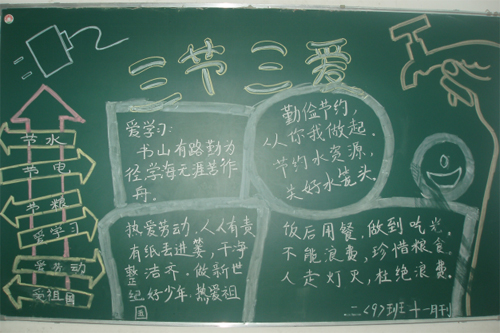 三节三爱
节水
节电
节粮
爱学习
爱劳动
爱祖国
爱学习:
书山有路勤为
径学海无涯苦作
舟.
勤俭节约,
从你我做起.
节约水资源,
关好水笼头.
热爱劳动,人人有责
有纸丢进篓,干净
整洁齐,做新世
纪好少年.热爱祖
国
饭后用餐,做到吃光,
不能浪费,珍惜粮食,
人走灯灭,杜绝浪费.
二(9)班十一月刊